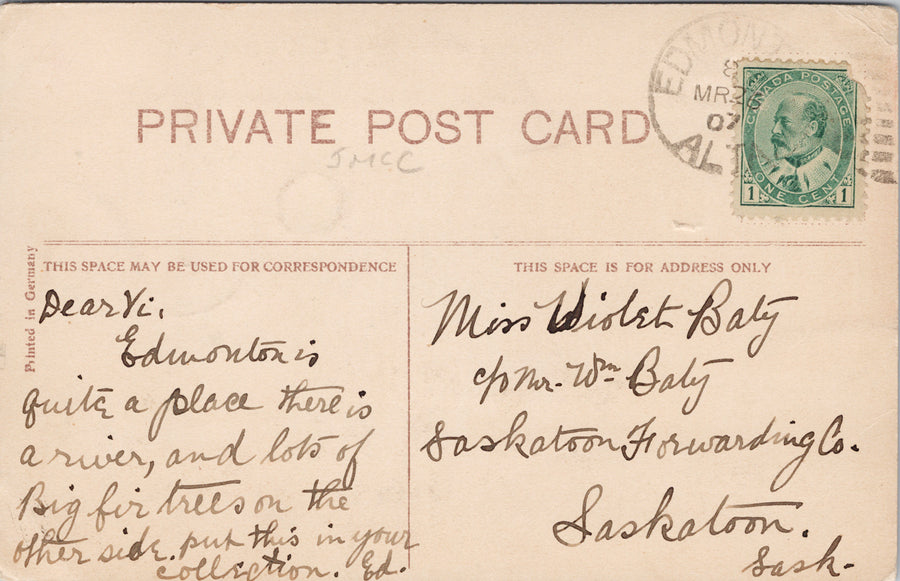 PRIVATE POST CARD
J McC
EDMONT
8
MR 2
07
ALT
CANADA POSTAGE
ONE CENT
1 1
Printed in Germany
THIS SPACE MAY BE USED FOR CORRESPONDENCE
Dear Vi,
Edmonton is
quite a place there is
a river, and lots of
Big fir trees on the
other side. put this in your
collection. Ed.
THIS SPACE IS FOR ADDRESS ONLY
Miss Violet Baty
c/o Mr. Wm Baty
Saskatoon Forwarding Co.
Saskatoon.
Sask.